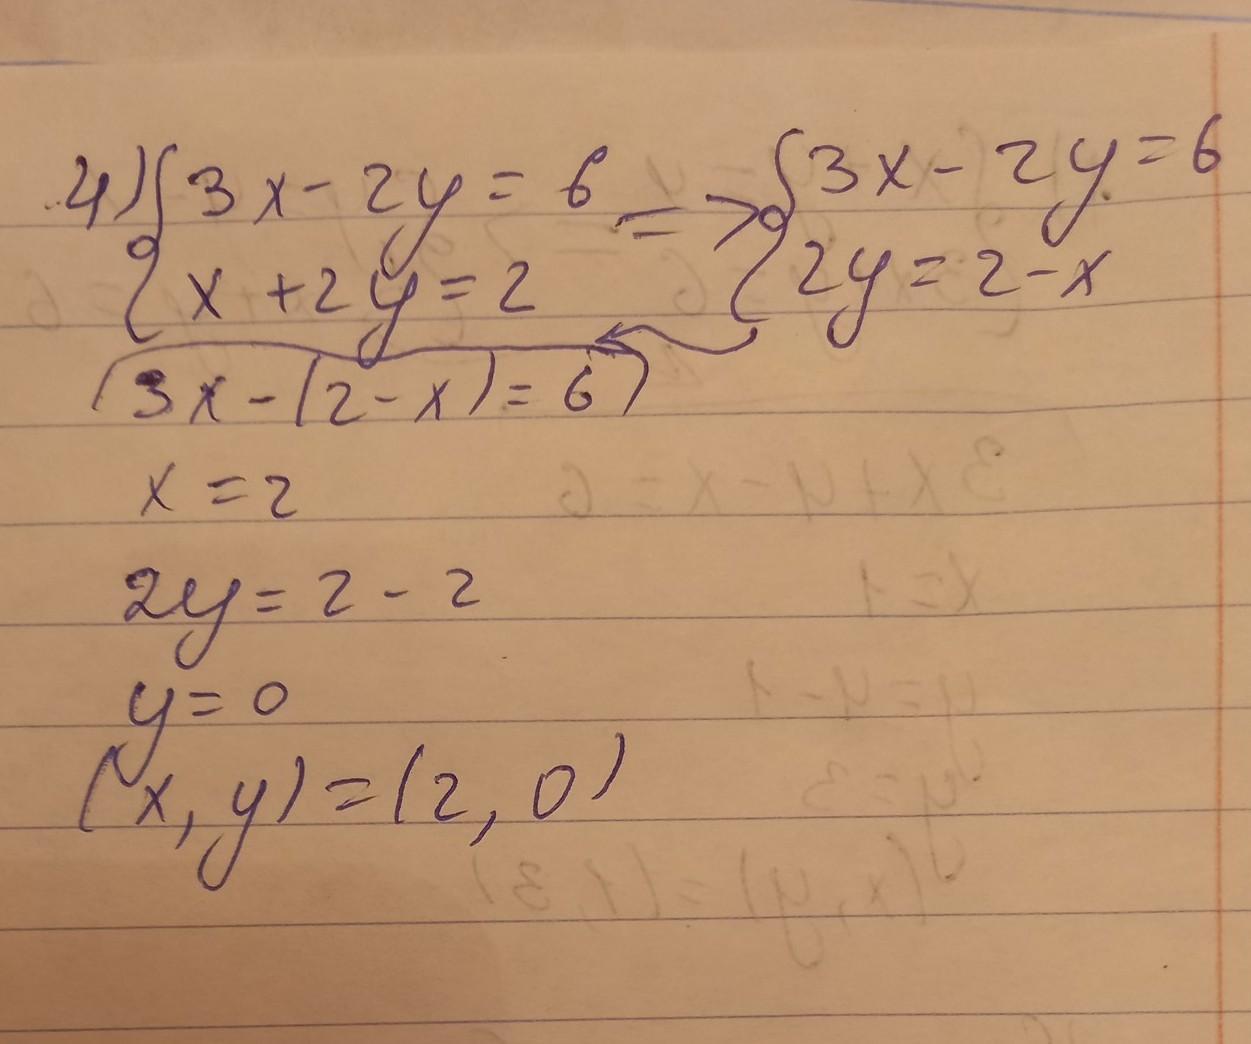 4) { 3x - 2y = 6 => { 3x - 2y = 6
x + 2y = 2 2y = 2 - x
(3x - (2 - x) = 6)
x = 2
2y = 2 - 2
y = 0
(x, y) = (2, 0)